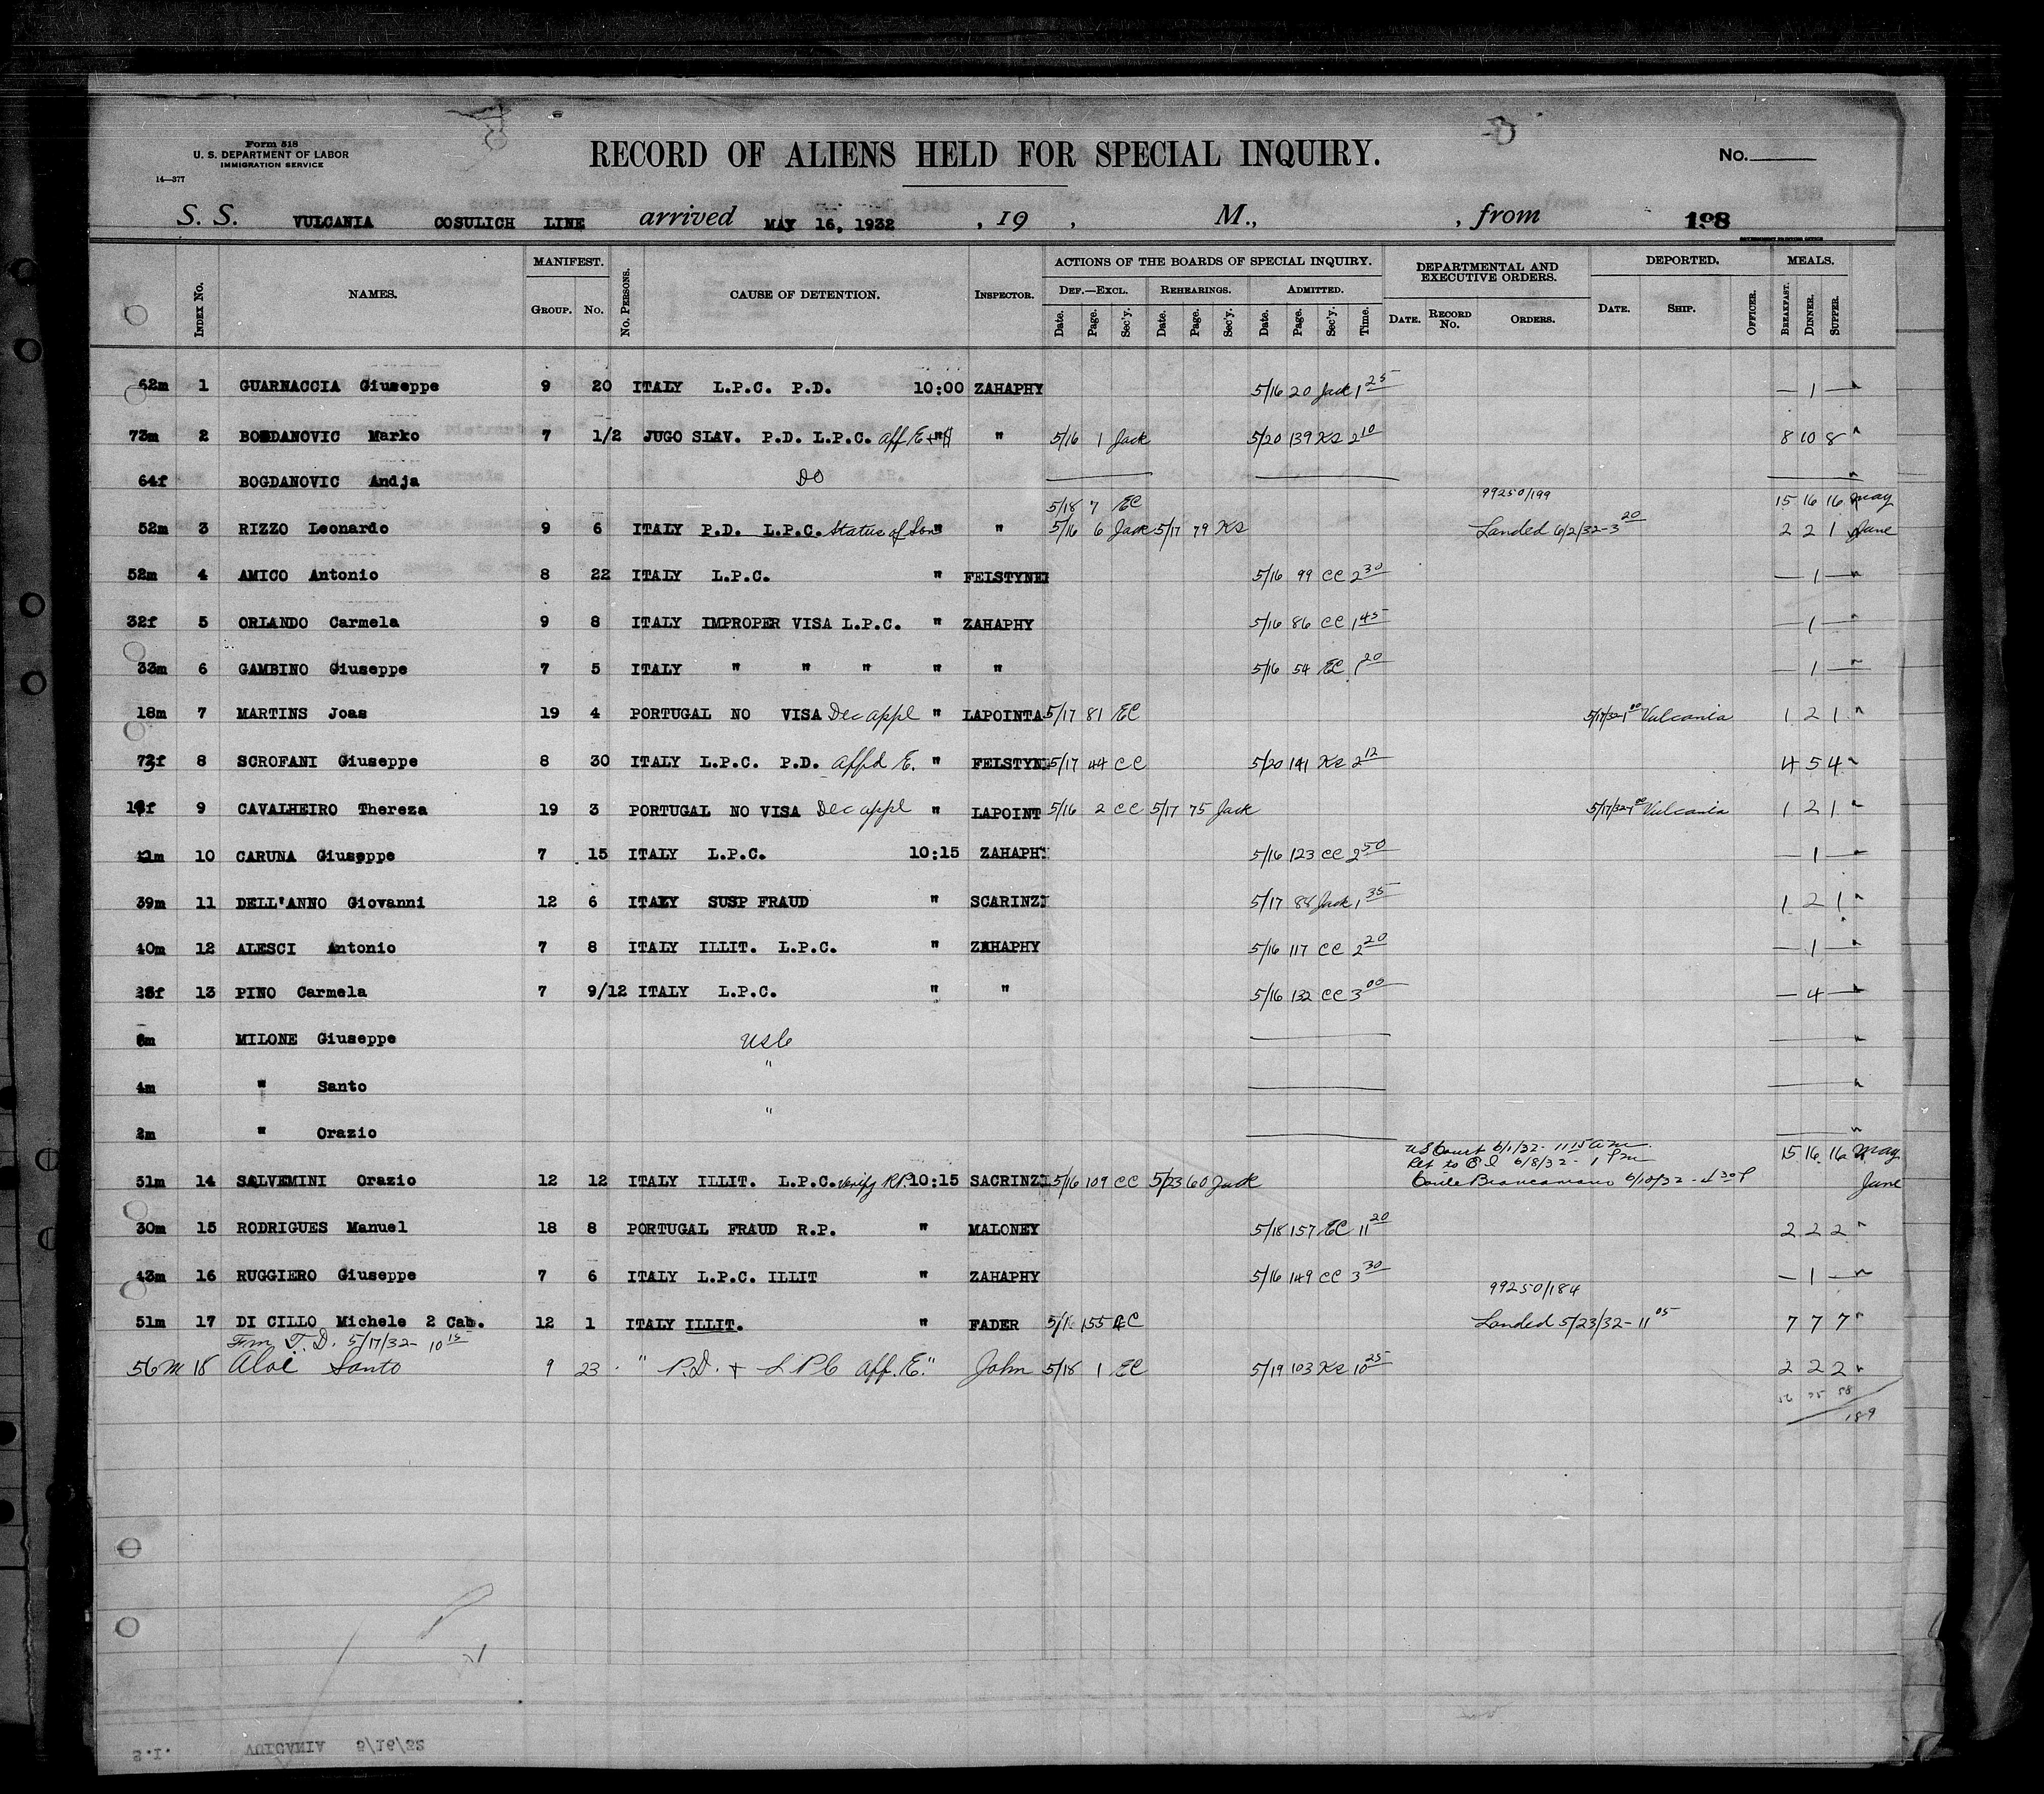 Form 518
U. S. DEPARTMENT OF LABOR
IMMIGRATION SERVICE
14—377
RECORD OF ALIENS HELD FOR SPECIAL INQUIRY.
No.
S. S. VULCANIA COSULICH LINE arrived MAY 16, 1932 , 19 , M., , from 198
INDEX No. NAMES. MANIFEST. GROUP. NO. No. PERSONS. CAUSE OF DETENTION. INSPECTOR. ACTIONS OF THE BOARDS OF SPECIAL INQUIRY. DEF.—EXCL. Date. Page. Sec'y. REHEARINGS. Date. Page. Sec'y. ADMITTED. Date. Page. Sec'y. Time. DEPARTMENTAL AND EXECUTIVE ORDERS. DATE. RECORD NO. ORDERS. DEPORTED. DATE. SHIP. OFFICER. MEALS. BREAKFAST. DINNER. SUPPER.
62m 1 GUARNACCIA Giuseppe 9 20 ITALY L.P.C. P.D. 10:00 ZAHAPHY 5/16 20 Jack 1 25 — 1 —
73m 2 BOGDANOVIC Marko 7 1/2 JUGO SLAV. P.D. L.P.C. aff E " 5/16 1 Jack 5/20 139 KS 2 10 8 10 8 "
64f BOGDANOVIC Andja DO "
5/18 7 EC 99250/199 15 16 16 May
52m 3 RIZZO Leonardo 9 6 ITALY P.D. L.P.C. Status of Son " " 5/16 6 Jack 5/17 79 KS Landed 6/2/32-3 20 2 2 1 June
52m 4 AMICO Antonio 8 22 ITALY L.P.C. " FELSTYNE 5/16 99 CC 2 30 — 1 — "
32f 5 ORLANDO Carmela 9 8 ITALY IMPROPER VISA L.P.C. " ZAHAPHY 5/16 86 CC 1 45 — 1 — "
33m 6 GAMBINO Giuseppe 7 5 ITALY " " " " " 5/16 54 EC 1 20 — 1 — "
18m 7 MARTINS Joas 19 4 PORTUGAL NO VISA Dec appl " LAPOINTA 5/17 81 EC 5/17/32-1 00 Vulcania 1 2 1 "
73f 8 SCROFANI Giuseppe 8 30 ITALY L.P.C. P.D. Affd E. " FELSTYN 5/17 44 CC 5/20 141 KS 2 12 4 5 4 "
9 CAVALHEIRO Thereza 19 3 PORTUGAL NO VISA Dec appl " LAPOINT 5/16 2 CC 5/17 75 Jack 5/17/32-1 00 Vulcania 1 2 1 "
41m 10 CARUNA Giuseppe 7 15 ITALY L.P.C. 10:15 ZAHAPH 5/16 123 CC 2 50 — 1 — "
39m 11 DELL'ANNO Giovanni 12 6 ITALY SUSP FRAUD " SCARINZI 5/17 88 Jack 1 35 1 2 1 "
40m 12 ALESCI Antonio 7 8 ITALY ILLIT. L.P.C. " ZAHAPHY 5/16 117 CC 2 20 — 1 — "
13 PINO Carmela 7 9/12 ITALY L.P.C. " " 5/16 132 CC 3 00 — 4 — "
MILONE Giuseppe USC "
4m " Santo " "
2m " Orazio " "
US Court 6/1/32- 11 15 a.m.
Ret to E I 6/8/32 - 1 Pm 15 16 16 May
31m 14 SALVEMINI Orazio 12 12 ITALY ILLIT. L.P.C. verify R.P. 10:15 SACRINZI 5/16 109 CC 5/23 60 Jack Conte Biancamano 6/10/32 June
30m 15 RODRIGUES Manuel 18 8 PORTUGAL FRAUD R.P. " MALONEY 5/18 157 EC 11 20 2 2 2 "
43m 16 RUGGIERO Giuseppe 7 6 ITALY L.P.C. ILLIT " ZAHAPHY 5/16 149 CC 3 30 — 1 — "
99250/184
51m 17 DI CILLO Michele 2 Cab. 12 1 ITALY ILLIT. " FADER 5/16 155 EC Landed 5/23/32- 11 05 7 7 7 "
Frm T. D. 5/17/32- 10 15
56 m 18 Aloi Santo 9 23 " P.D. + L P C aff. E. " John 5/18 1 EC 5/19 103 KS 10 25 2 2 2 "
56 75 58
189
S.I. VULCANIA 5/16/32